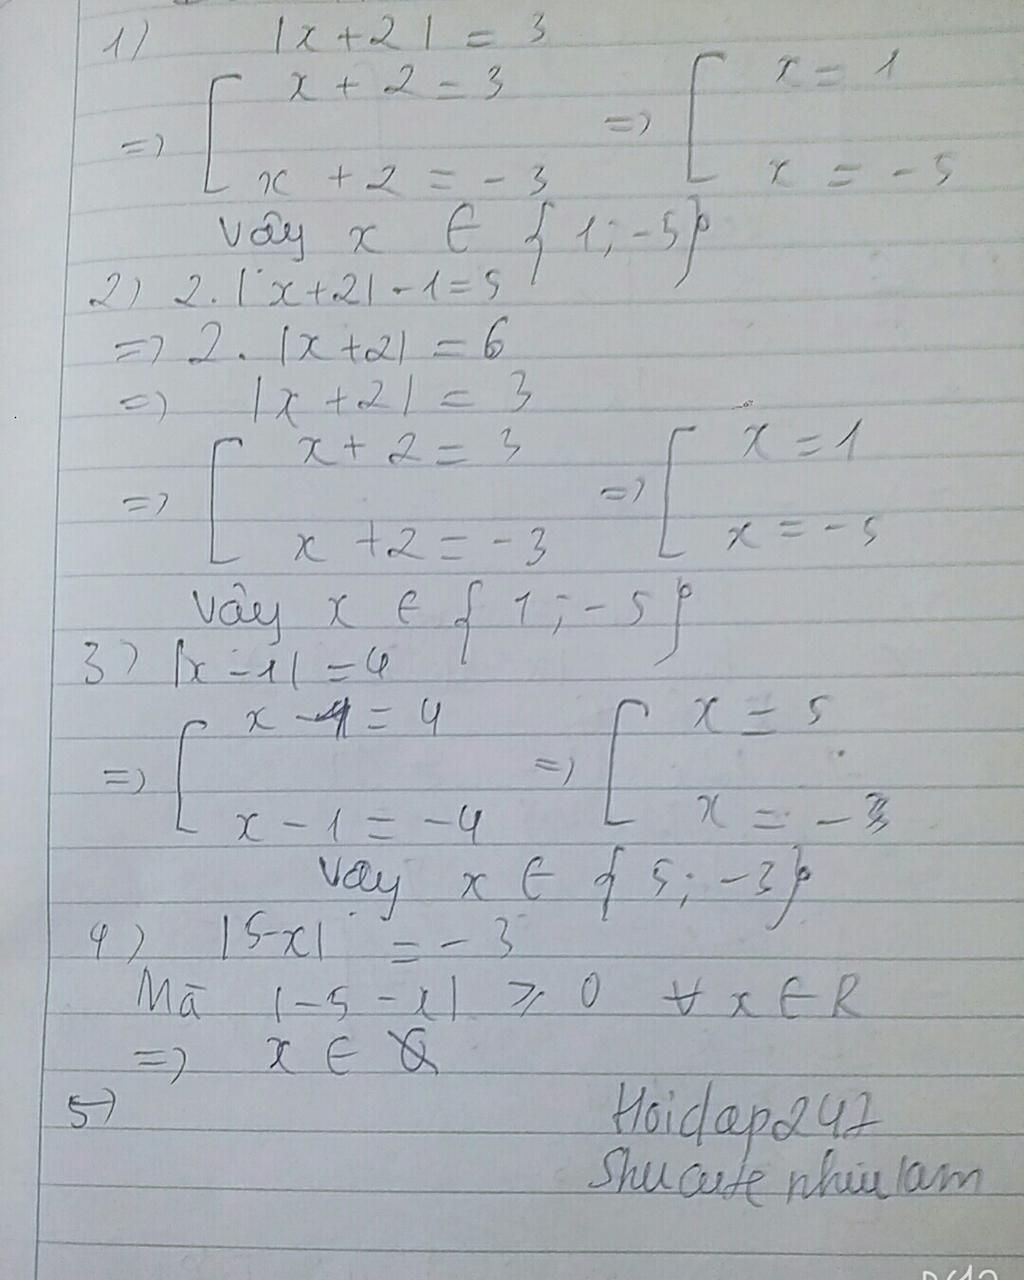 1) |x+2| = 3
=> [ x + 2 = 3 => [ x = 1
x + 2 = -3 x = -5
Vây x ∈ {1; -5}
2) 2.|x+2| - 1 = 5
=> 2. |x+2| = 6
=> |x+2| = 3
=> [ x + 2 = 3 => [ x = 1
x + 2 = -3 x = -5
Vây x ∈ {1; -5}
3) |x-1| = 4
=> [ x - 1 = 4 => [ x = 5
x - 1 = -4 x = -3
Vay x ∈ {5; -3}
4) |5-x| = -3
Mà |-5-x| ⩾ 0 ∀ x ∈ R
=> x ∈ Ø
5)
Hoidap247
Shucute nhiulam